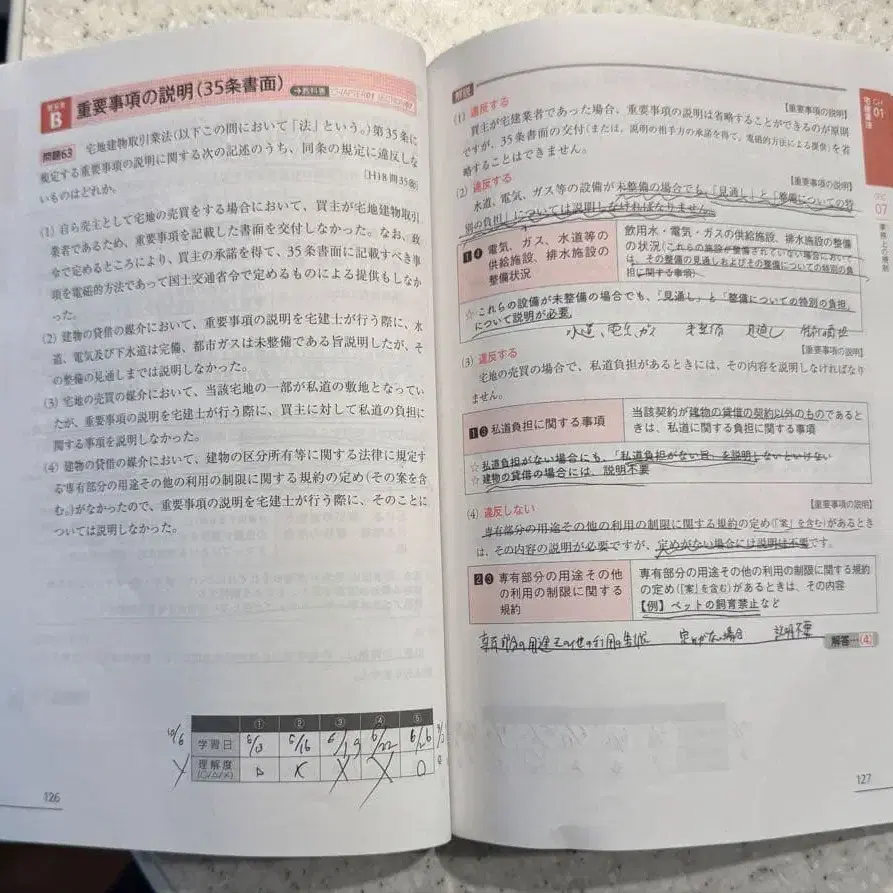 重要度
B
重要事項の説明(35条書面)
→教科書 CHAPTER01 SECTION07
問題63 宅地建物取引業法(以下この問において「法」という。)第35条に
規定する重要事項の説明に関する次の記述のうち、同条の規定に違反しな
いものはどれか。
[H18問35改]
(1) 自ら売主として宅地の売買をする場合において、買主が宅地建物取引
業者であるため、重要事項を記載した書面を交付しなかった。なお、政
令で定めるところにより、買主の承諾を得て、35条書面に記載すべき事
項を電磁的方法であって国土交通省令で定めるものによる提供もしなか
った。
(2) 建物の貸借の媒介において、重要事項の説明を宅建士が行う際に、水
道、電気及び下水道は完備、都市ガスは未整備である旨説明したが、そ
の整備の見通しまでは説明しなかった。
(3) 宅地の売買の媒介において、当該宅地の一部が私道の敷地となってい
たが、重要事項の説明を宅建士が行う際に、買主に対して私道の負担に
関する事項を説明しなかった。
(4) 建物の貸借の媒介において、建物の区分所有等に関する法律に規定す
る専有部分の用途その他の利用の制限に関する規約の定め(その案を含
む。)がなかったので、重要事項の説明を宅建士が行う際に、そのことに
ついては説明しなかった。
① ② ③ ④ ⑤
学習日 6/13 6/16 6/19 6/22 6/26
理解度
(○/△/×) △ × × × ○
126
解説
(1) 違反する
【重要事項の説明】
買主が宅建業者であった場合、重要事項の説明は省略することができるのが原則
ですが、35条書面の交付(または、説明の相手方の承諾を得て、電磁的方法による提供)を省
略することはできません。
(2) 違反する
【重要事項の説明】
水道、電気、ガス等の設備が未整備の場合でも、「見通し」と「整備についての特
別の負担」については説明しなければなりません。
1 4 電気、ガス、水道等の
供給施設、排水施設の
整備状況
飲用水・電気・ガスの供給施設、排水施設の整備
の状況(これらの施設が整備されていない場合において
は、その整備の見通しおよびその整備についての特別の負
担に関する事項)
☆これらの設備が未整備の場合でも、「見通し」と「整備についての特別の負担」
について説明が必要。
水道、電気、ガス 未整備 見通し 特別の負担
(3) 違反する
【重要事項の説明】
宅地の売買の場合で、私道負担があるときには、その内容を説明しなければなり
ません。
1 3 私道負担に関する事項
当該契約が建物の貸借の契約以外のものであると
きは、私道に関する負担に関する事項
☆私道負担がない場合にも、「私道負担がない旨」を説明しないといけない
☆建物の貸借の場合には、説明不要
(4) 違反しない
【重要事項の説明】
専有部分の用途その他の利用の制限に関する規約の定め(「案」を含む)があるとき
は、その内容の説明が必要ですが、定めがない場合には説明は不要です。
2 3 専有部分の用途その他
の利用の制限に関する
規約
専有部分の用途その他の利用の制限に関する規約
の定め(「案」を含む)があるときは、その内容
【例】ペットの飼育禁止など
専有部分の用途その他の利用の制限 定めがない場合 説明不要
解答…(4)
CH
01
宅建業法
SEC
07
127